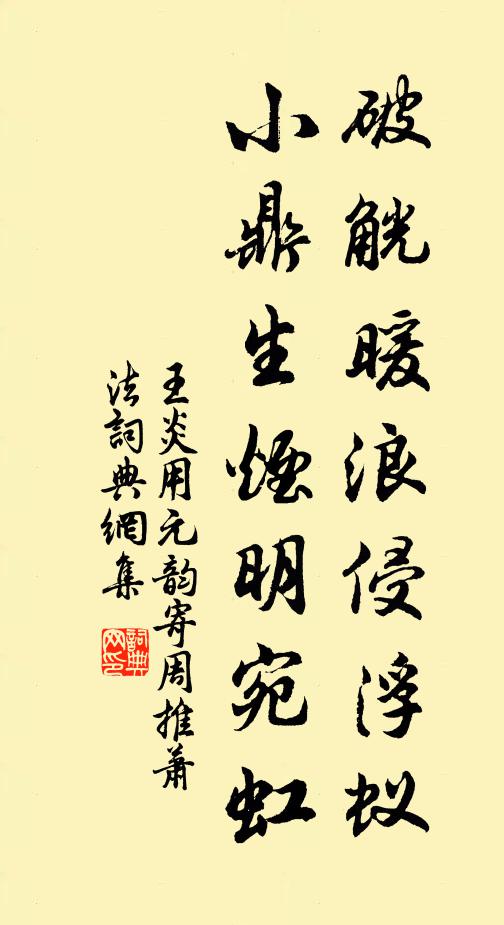 破觥暖浪侵浮蚁
小鼎生煙明宛虹
王炎用元韵寄周推萧
法詞典網集
詞典
网印